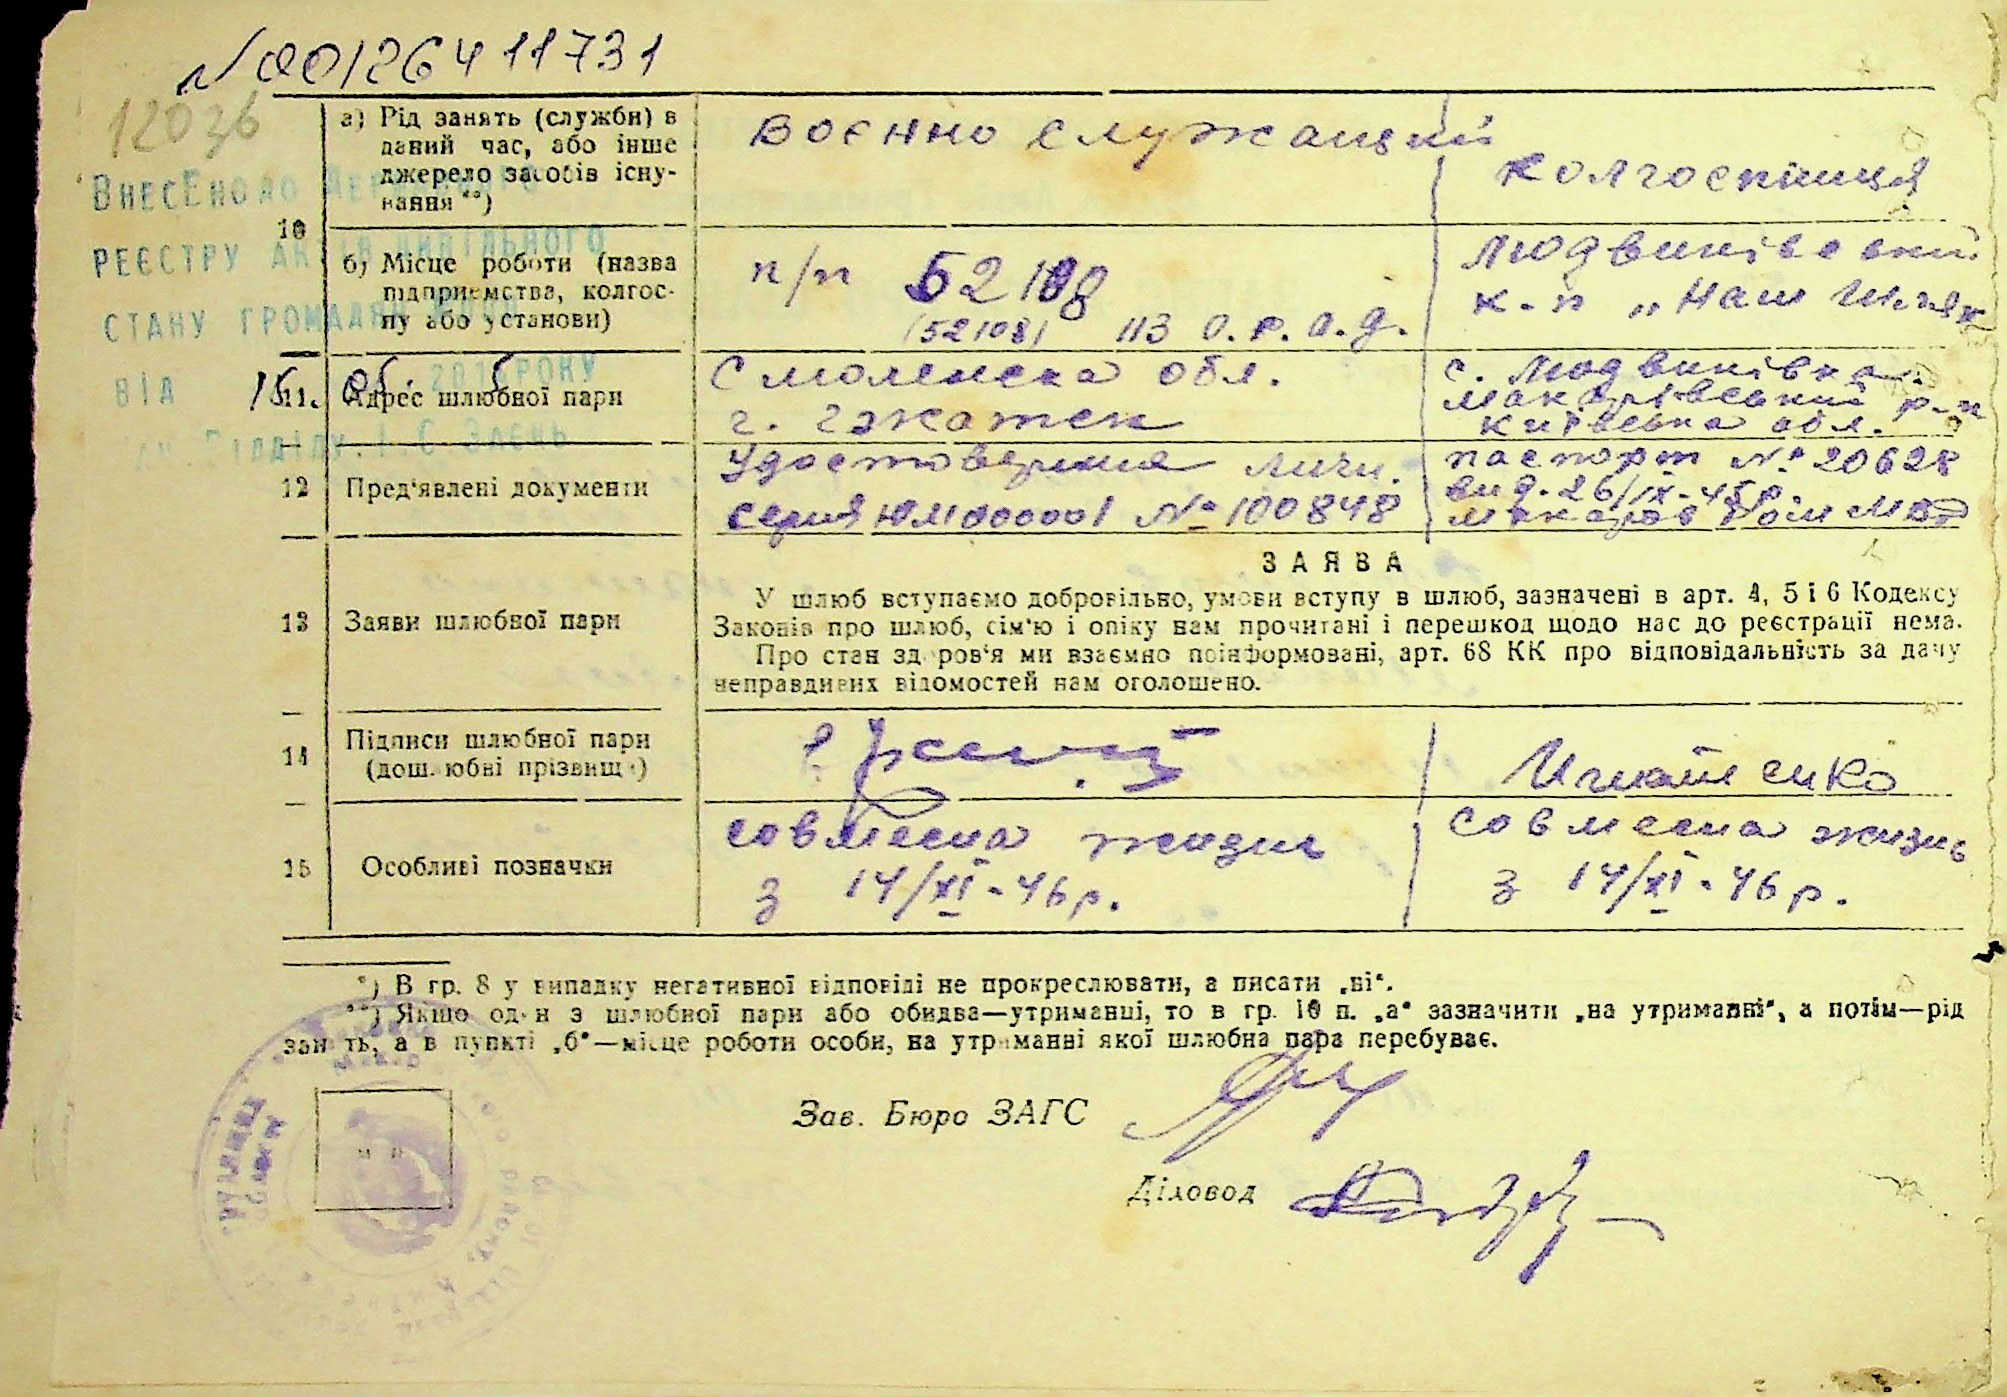 № 00126411731
12036
ВНЕСЕНО ДО ДЕРЖАВНОГО
РЕЄСТРУ АКТІВ ЦИВІЛЬНОГО
СТАНУ ГРОМАДЯН
ВІД 15. 06. 201 6 РОКУ
10
а) Рід занять (служби) в
даний час, або інше
джерело засобів існу-
вання **)
Воєнно служащий
колгоспниця
б) Місце роботи (назва
підприємства, колгос-
пу або установи)
п/п 52108
(52108) 113 О.Р.А.Д.
Людвинівський
к-п „Наш Шлях
11. Адрес шлюбної пари
Смоленска обл.
г. Гжатск
с. Людвинівка
Макарівський р-н
Київська обл.
12 Пред'явлені документи
Удостоверения личн.
серия ЮМ000001 № 100848
паспорт № 20628
вид. 26/IX-45р.
13 Заяви шлюбної пари
ЗАЯВА
У шлюб вступаємо добровільно, умови вступу в шлюб, зазначені в арт. 4, 5 і 6 Кодексу
Законів про шлюб, сім'ю і опіку нам прочитані і перешкод щодо нас до реєстрації нема.
Про стан здоров'я ми взаємно поінформовані, арт. 68 КК про відповідальність за дачу
неправдивих відомостей нам оголошено.
14
Підписи шлюбної пари
(дошлюбні прізвища)
Игнатенко
15 Особливі позначки
совмесна жизнь
з 14/XI-46р.
совмесна жизнь
з 14/XI-46р.
*) В гр. 8 у випадку негативної відповіді не прокреслювати, а писати „ні“.
**) Якщо один з шлюбної пари або обидва—утриманці, то в гр. 10 п. „а“ зазначити „на утриманні“, а потім—рід
занять, а в пункті „б“—місце роботи особи, на утриманні якої шлюбна пара перебуває.
М П
Зав. Бюро ЗАГС
Діловод